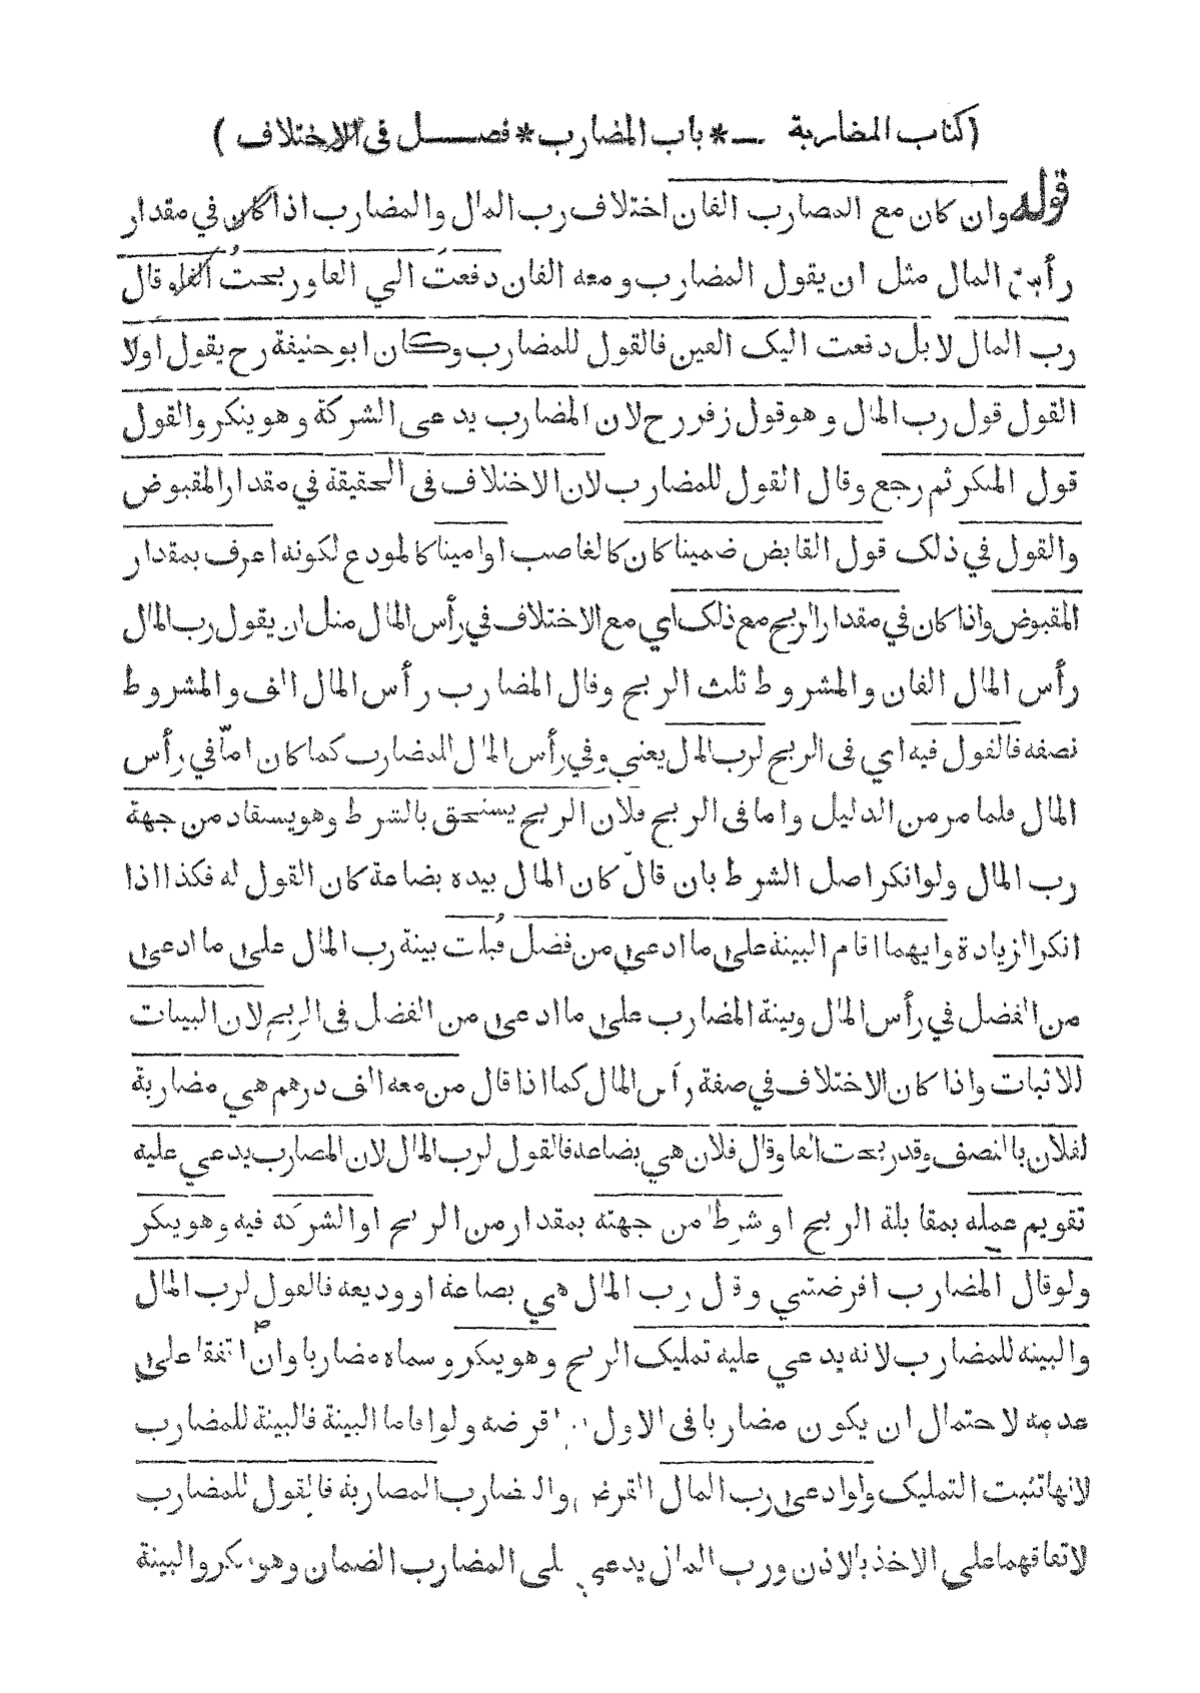 (كتاب المضاربة ـ * باب المضارب * فصـــل فى الاختلاف)
قوله وان كان مع المضارب الفان اختلاف رب المال والمضارب اذا كان في مقدار
رأس المال مثل ان يقول المضارب ومعه الفان دفعت الي الفا وربحت الفا وقال
رب المال لا بل دفعت اليك الفين فالقول للمضارب وكان ابو حنيفة رح يقول اولا
القول قول رب المال وهو قول زفر رح لان المضارب يدعى الشركة وهو ينكر والقول
قول المنكر ثم رجع وقال القول للمضارب لان الاختلاف فى الحقيقة في مقدار المقبوض
والقول في ذلك قول القابض ضمينا كان كالغاصب او امينا كالمودع لكونه اعرف بمقدار
المقبوض واذا كان في مقدار الربح مع ذلك اي مع الاختلاف في رأس المال مثل ان يقول رب المال
رأس المال الفان والمشروط ثلث الربح وقال المضارب رأس المال الف والمشروط
نصفه فالقول فيه اي فى الربح لرب المال يعني وفي رأس المال للمضارب كما كان اما في رأس
المال فلما مر من الدليل واما فى الربح فلان الربح يستحق بالشرط وهو يستفاد من جهة
رب المال ولو انكر اصل الشرط بان قال كان المال بيده بضاعة كان القول له فكذا اذا
انكر الزيادة وايهما اقام البينة على ما ادعى من فضل قبلت بينة رب المال على ما ادعى
من الفضل في رأس المال وبينة المضارب على ما ادعى من الفضل فى الربح لان البينات
للاثبات واذا كان الاختلاف في صفة رأس المال كما اذا قال من معه الف درهم هي مضاربة
لفلان بالنصف وقد ربحت الفا وقال فلان هي بضاعه فالقول لرب المال لان المضارب يدعي عليه
تقويم عمله بمقابلة الربح او شرطا من جهته بمقدار من الربح او الشركة فيه وهو ينكر
ولو قال المضارب اقرضتني وقال رب المال هي بضاعة او وديعه فالقول لرب المال
والبينه للمضارب لانه يدعي عليه تمليك الربح وهو ينكر وسماه مضاربا وان اتفقا على
عدمه لاحتمال ان يكون مضاربا فى الاول ثم اقرضه ولو اقاما البينة فالبينة للمضارب
لانها تثبت التمليك ولو ادعى رب المال القرض والمضارب المضاربة فالقول للمضارب
لاتفاقهما على الاخذ بالاذن ورب المال يدعي على المضارب الضمان وهو ينكر والبينة